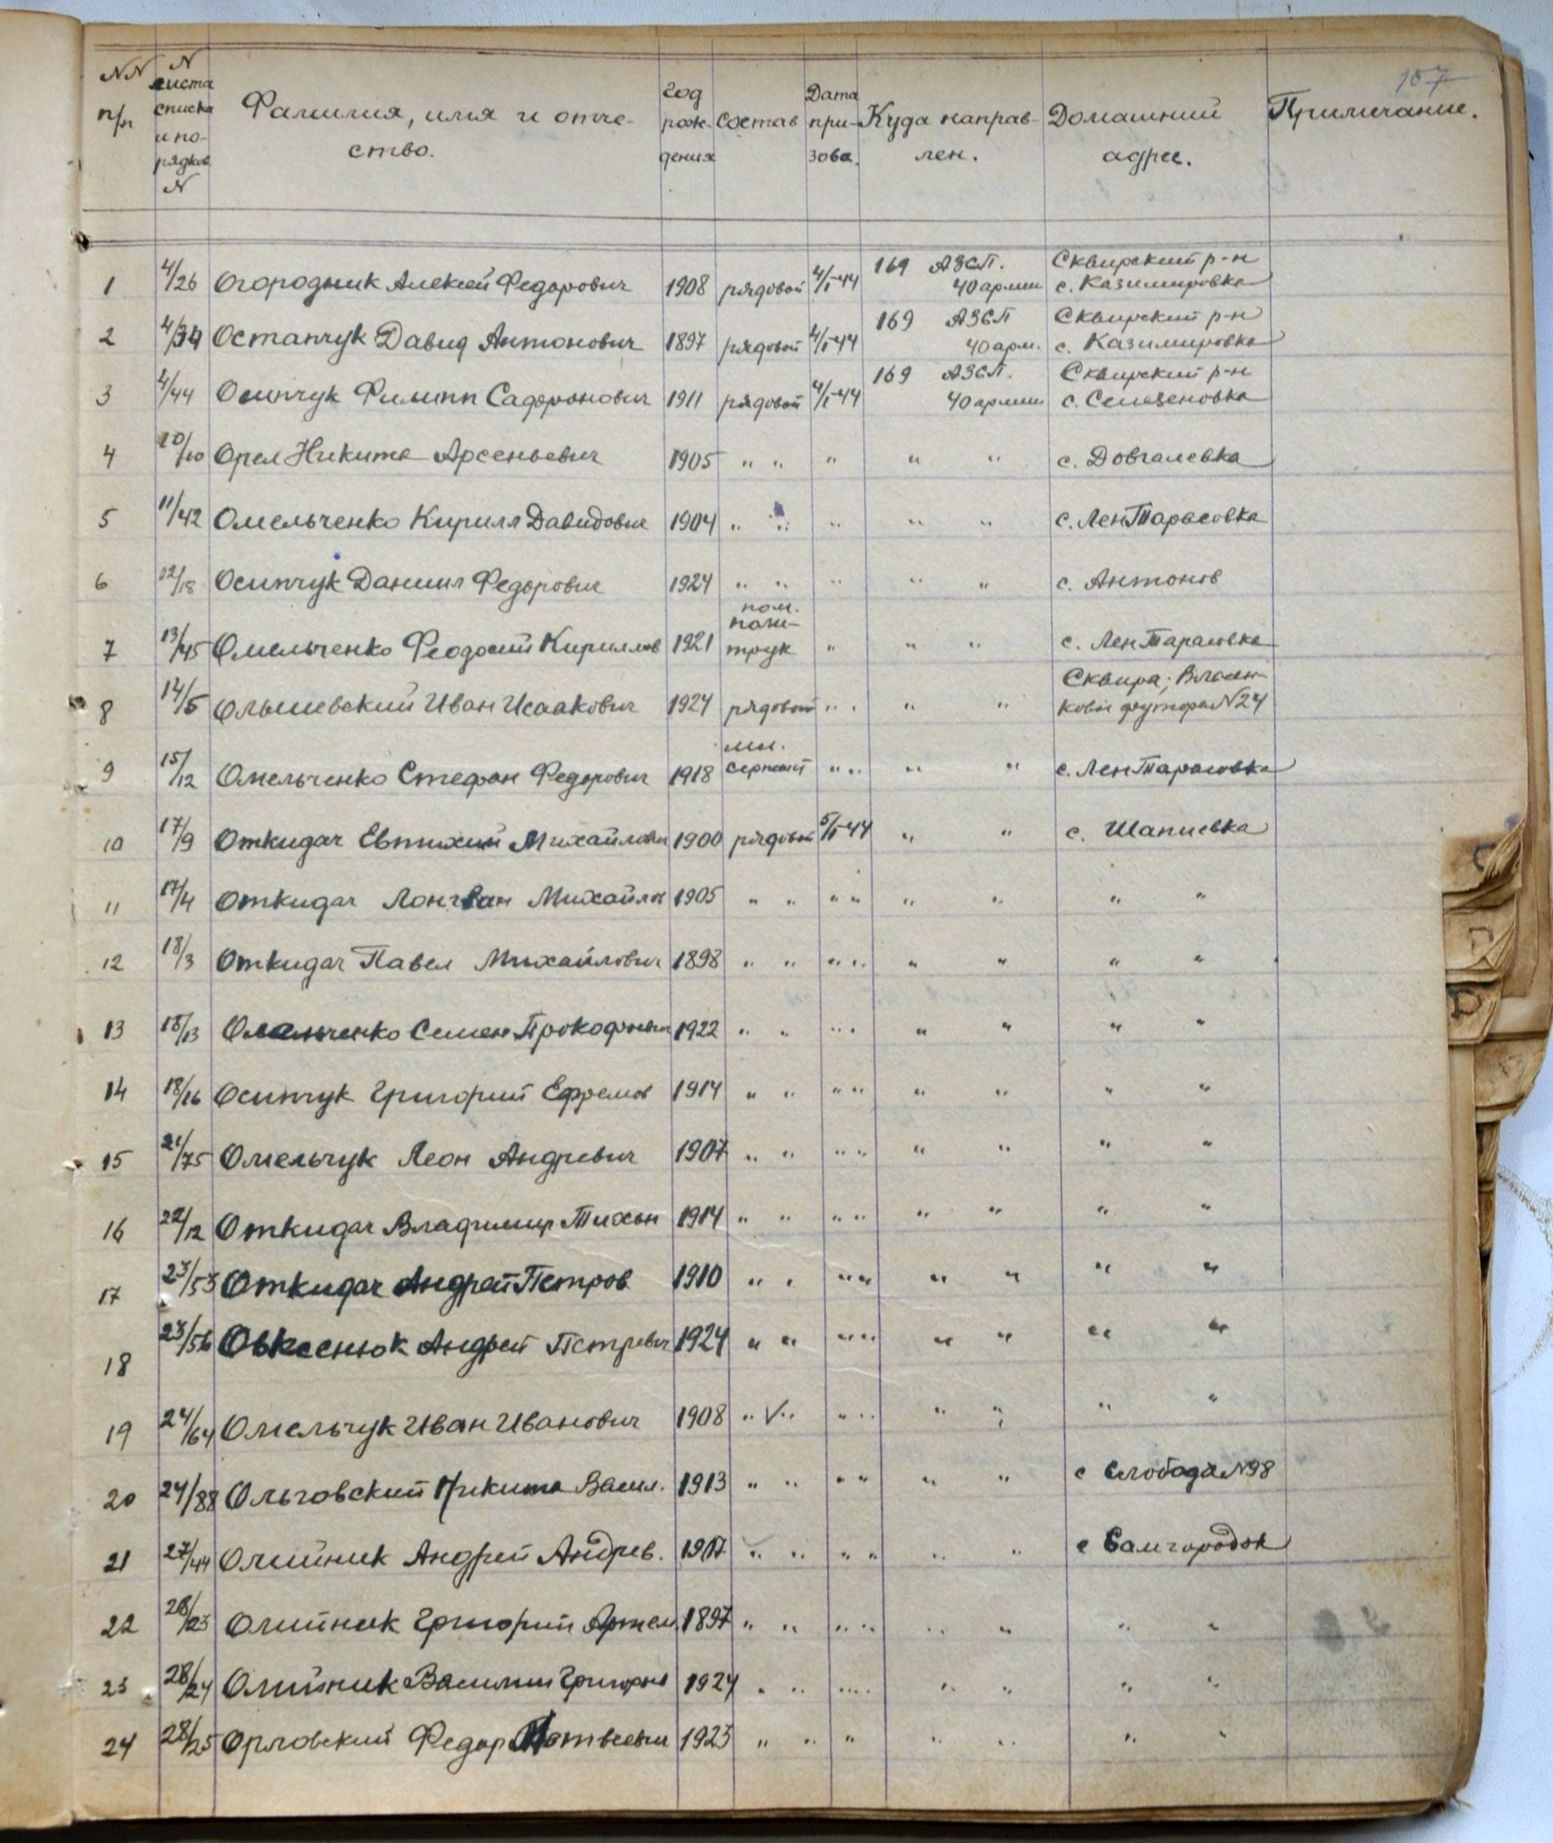 107
NN п/п
N листа списка и порядков N
Фамилия, имя и отчество.
год рождения
состав
Дата призова.
Куда направлен.
Домашний адрес.
Примечание.
1 4/26 Огородник Алексей Федорович 1908 рядовой 4/I-44 169 АЗСП. 40 армии Сквирский р-н с. Казимировка
2 4/34 Остапчук Давид Антонович 1897 рядовой 4/I-44 169 АЗСП 40 арм. Сквирский р-н с. Казимировка
3 4/44 Осипчук Филипп Сафронович 1911 рядовой 4/I-44 169 АЗСП. 40 армии Сквирский р-н с. Селезеновка
4 10/10 Орел Никита Арсеньевич 1905 " " " " " с. Довгалевка
5 11/42 Омельченко Кирилл Давидович 1904 " " " " " с. ЛенТарасовка
6 12/18 Осипчук Даниил Федорович 1924 " " " " " с. Антонов
7 13/45 Омельченко Феодосий Кириллов 1921 пом. политрук " " " с. ЛенТарасовка
8 14/5 Ольшевский Иван Исаакович 1924 рядовой " " " " Сквира; хутора N24
9 15/12 Омельченко Стефан Федорович 1918 мл. сержант " " " " с. ЛенТарасовка
10 17/9 Откидач Евтихий Михайлович 1900 рядовой 5/I-44 " " с. Шапиевка
11 17/4 Откидач Михайлов 1905 " " " " " " " "
12 18/3 Откидач Павел Михайлович 1898 " " " " " " " "
13 18/13 Омельченко Семен Прокофьевич 1922 " " " " " " " "
14 18/16 Осипчук Григорий Ефремов 1914 " " " " " " " "
15 21/75 Омельчук Леон Андреевич 1907 " " " " " " " "
16 22/12 Откидач Владимир Тихон 1914 " " " " " " " "
17 23/53 Откидач Андрей Петров 1910 " " " " " " " "
18 23/56 Андрей Петревич 1924 " " " " " " " "
19 24/64 Омельчук Иван Иванович 1908 " " " " " " " "
20 24/88 Ольговский Никита Васил. 1913 " " " " " " с Слобода N98
21 27/44 Олийник Андрей Андрев. 1917 " " " " " " с Самгородок
22 28/23 Олийник Григорий Артем. 1897 " " " " " " " "
23 28/24 Олийник Василий Григорьев 1924 " " " " " " " "
24 28/25 Орловский Федор Матвеевич 1923 " " " " " " "